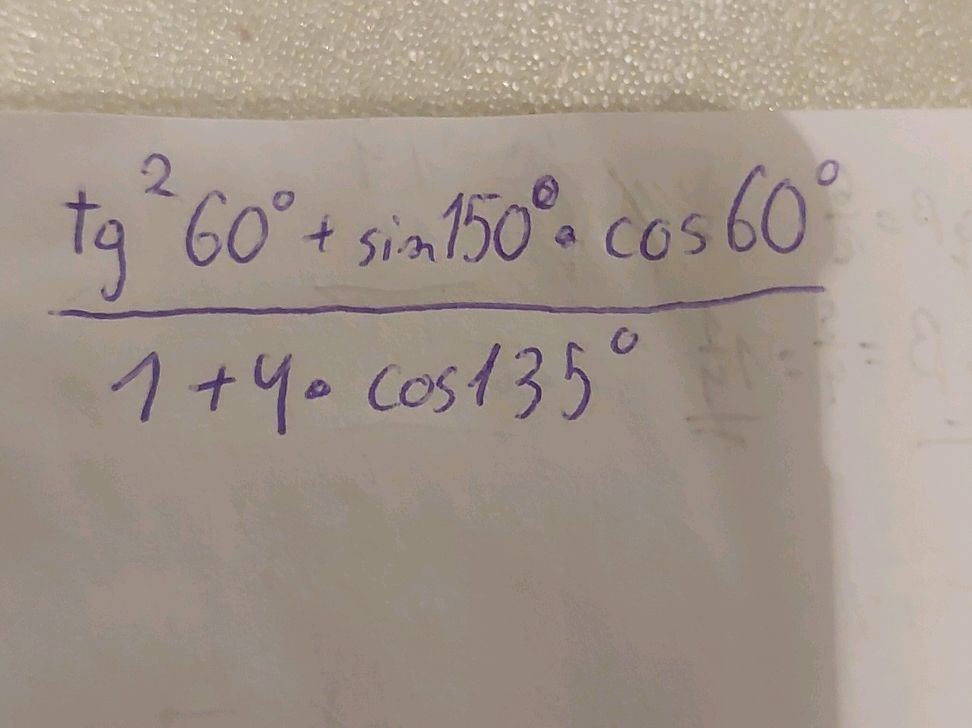 tg² 60° + sin 150° • cos 60°
1 + 4 • cos 135°